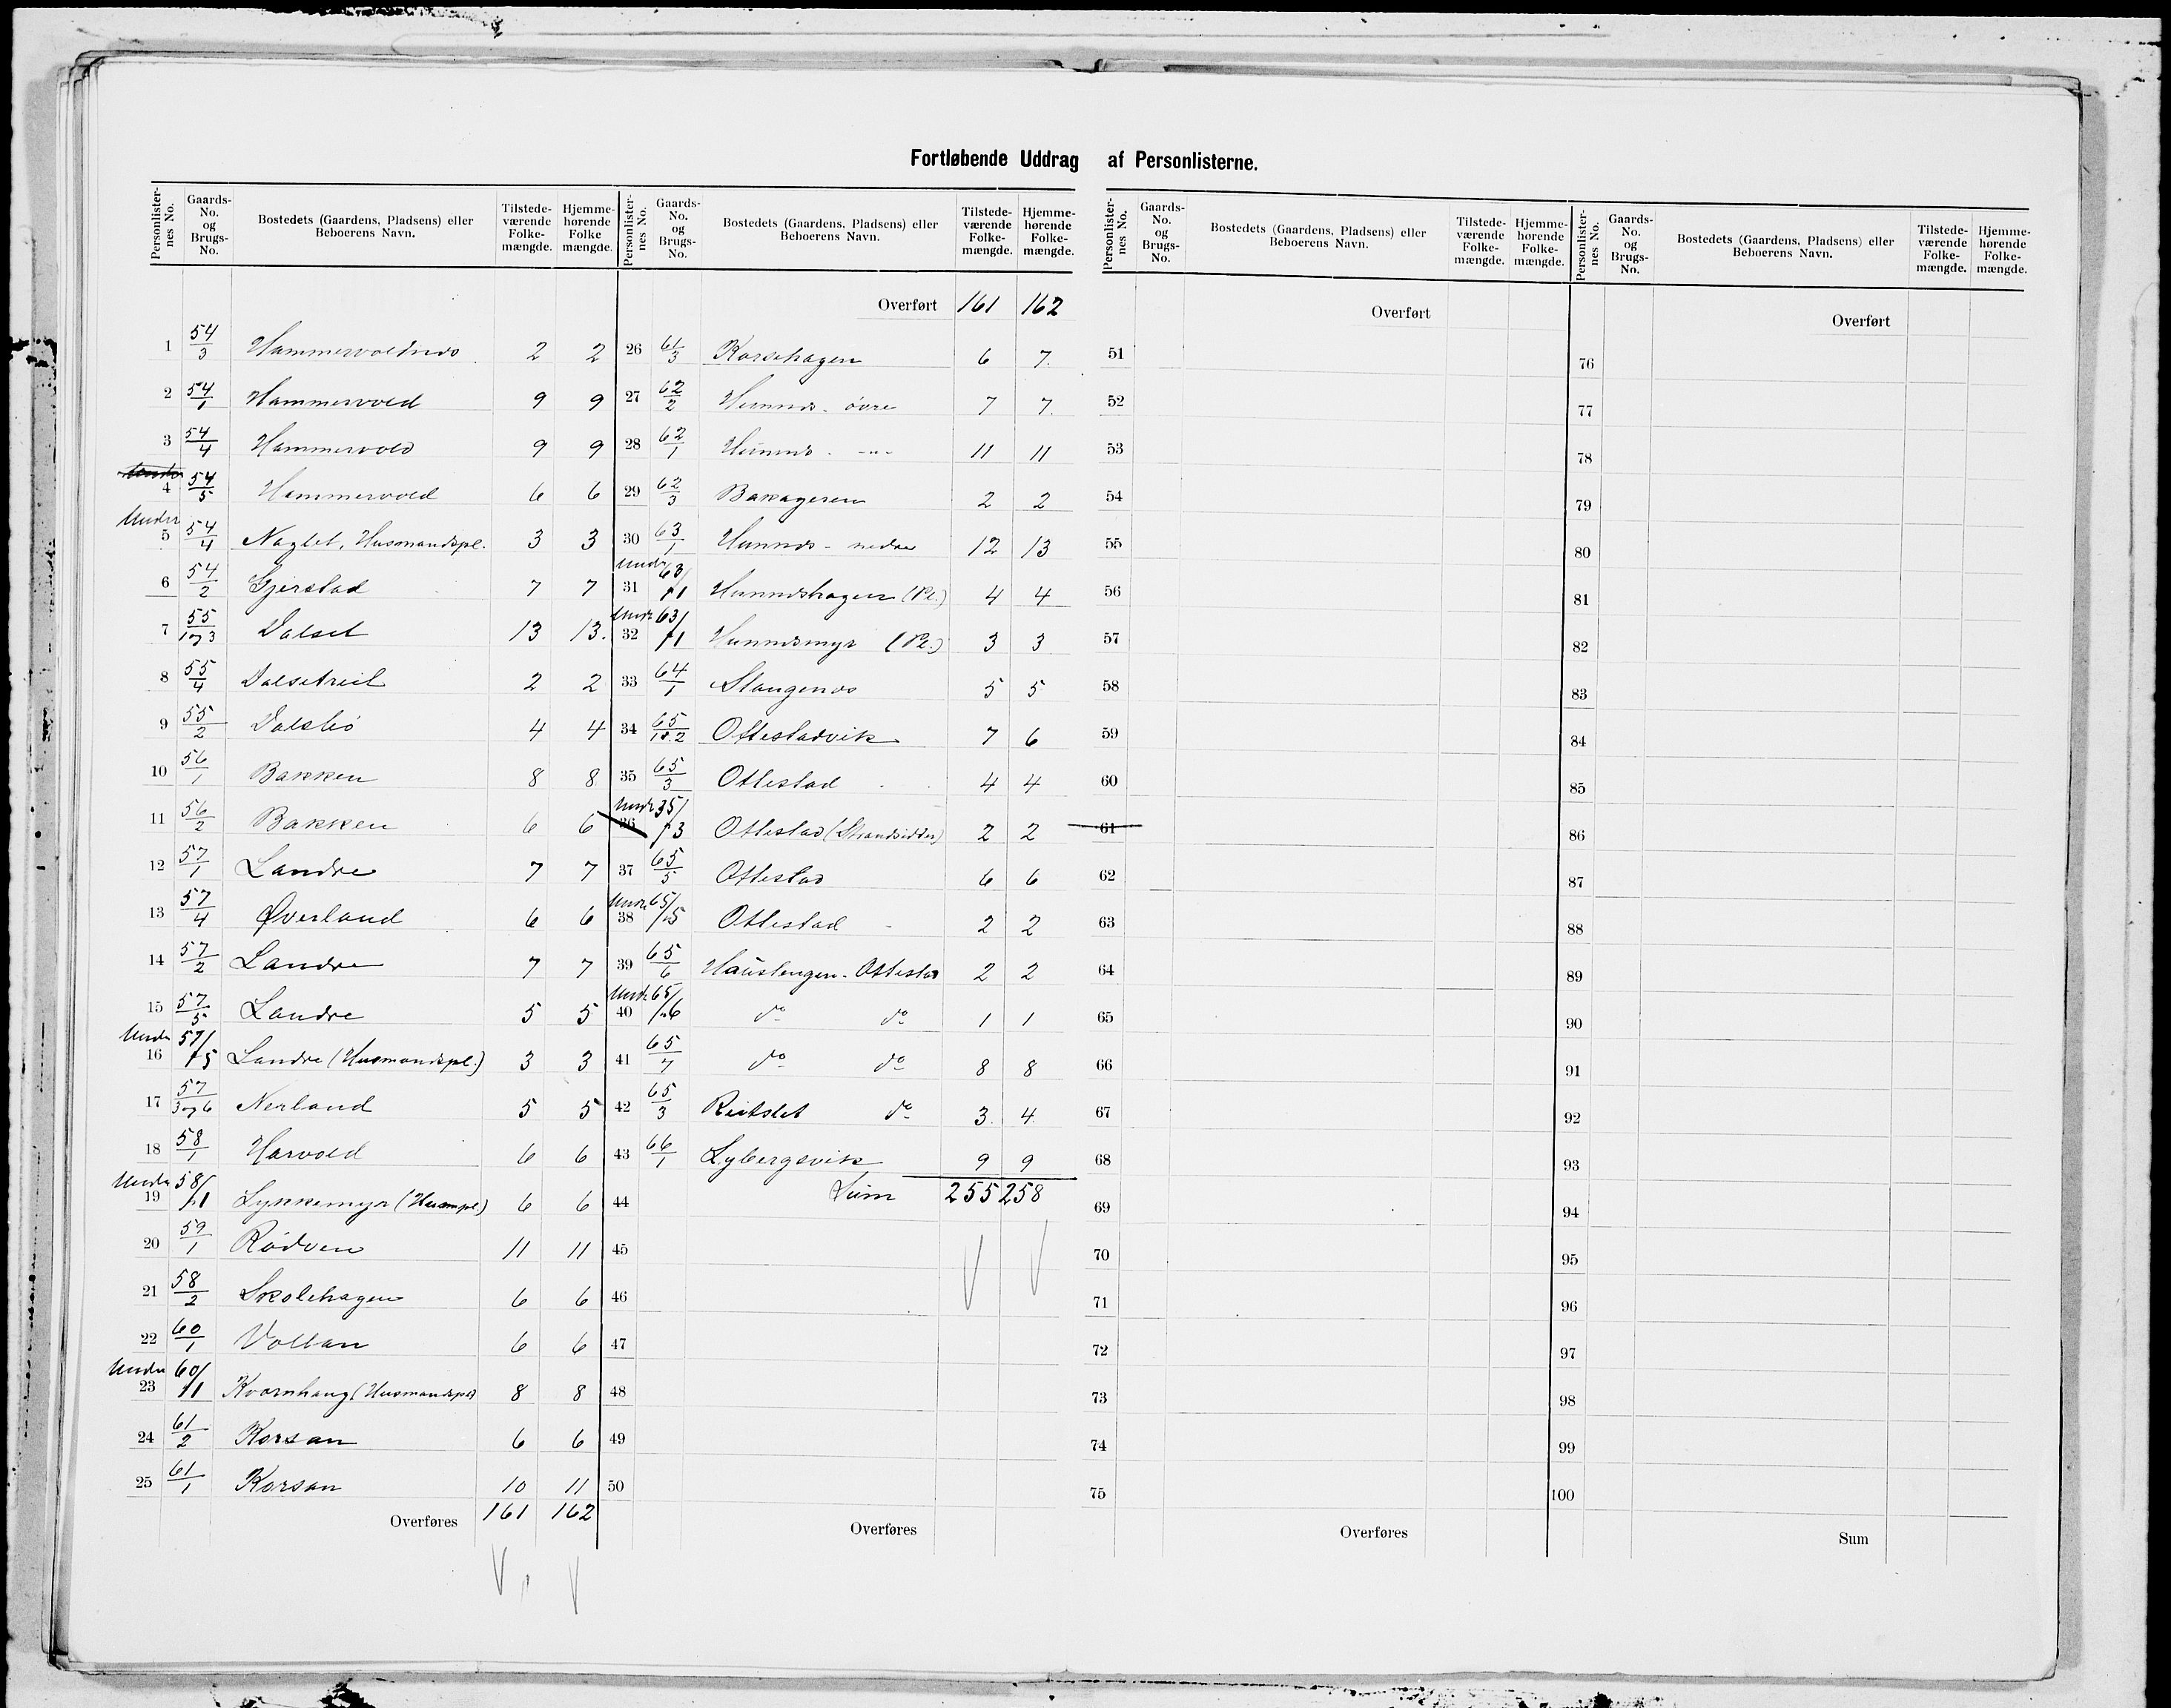 Fortløbende Uddrag af Personlisterne.
Personlister-nes No. | Gaards-No. og Brugs-No. | Bostedets (Gaardens, Pladsens) eller Beboerens Navn. | Tilstede-værende Folke-mængde. | Hjemme-hørende Folke mængde.
1 54/3 Hammervoldnes 2 2
2 54/1 Hammervold 9 9
3 54/4 Hammervold 9 9
4 54/5 Hammervold 6 6
Under 5 54/4 Naglet, Husmandspl. 3 3
6 54/2 Gjerstad 7 7
7 55/1 og 3 Dalset 13 13.
8 55/4 Dalsetreit 2 2
9 55/2 Dalsbö 4 4
10 56/1 Bakken 8 8
11 56/2 Bakken 6 6
12 57/1 Landre 7 7
13 57/4 Øverland 6 6
14 57/2 Landre 7 7
15 57/5 Landre 5 5
Under 16 57/5 Landre (Husmandspl.) 3 3
17 57/3 og 6 Nerland 5 5
18 58/1 Harvold 6 6
Under 19 58/1 Lykkemyr (Husmpl.) 6 6
20 59/1 Rödven 11 11
21 58/2 Skolehagen 6 6
22 60/1 Vollan 6 6
Under 23 60/1 Kvornhaug (Husmandspl) 8 8
24 61/2 Korsan 6 6
25 61/1 Korsan 10 11
Overføres 161 162
Personlister-nes No. | Gaards-No. og Brugs-No. | Bostedets (Gaardens, Pladsens) eller Beboerens Navn. | Tilstede-værende Folke-mængde. | Hjemme-hørende Folke-mængde.
Overført 161 162
26 61/3 Korsehagen 6 7.
27 62/2 Hunnes - övre 7 7.
28 62/1 Hunnes - -"- 11 11
29 62/3 Bakageren 2 2
30 63/1 Hunnes - nedre 12 13
Under 31 63/1 Hunneshagen (Pl.) 4 4
Under 32 63/1 Hunnesmyr (Pl.) 3 3
33 64/1 Slangenes 5 5
34 65/1 & 2 Ottestadvik 7 6
35 65/3 Ottestad 4 4
Under 36 35/3 Ottestad (Strandsidder) 2 2
37 65/5 Ottestad 6 6
Under 38 65/5 Ottestad 2 2
39 65/6 Hauslengen - Ottestad 2 2
Under 40 65/6 do do 1 1
41 65/7 do do 8 8
42 65/3 Reitslet do 3 4
43 66/1 Lybergsvik 9 9
44 Sum 255 258
45
46
47
48
49
50
Overføres
Personlister-nes No. | Gaards-No. og Brugs-No. | Bostedets (Gaardens, Pladsens) eller Beboerens Navn. | Tilstede-værende Folke-mængde. | Hjemme-hørende Folke-mængde.
Overført
51
52
53
54
55
56
57
58
59
60
61
62
63
64
65
66
67
68
69
70
71
72
73
74
75
Overføres
Personlister-nes No. | Gaards-No. og Brugs-No. | Bostedets (Gaardens, Pladsens) eller Beboerens Navn. | Tilstede-værende Folke-mængde. | Hjemme-hørende Folke-mængde.
Overført
76
77
78
79
80
81
82
83
84
85
86
87
88
89
90
91
92
93
94
95
96
97
98
99
100
Sum